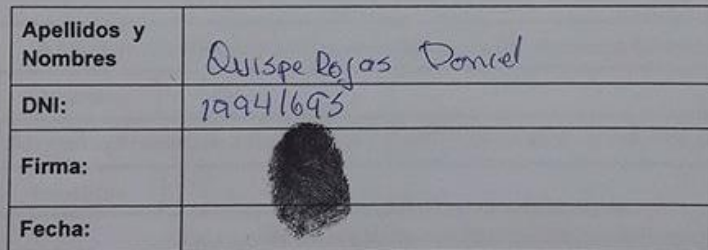 Apellidos y
Nombres
Quispe Rojas Daniel
DNI:
19941695
Firma:
Fecha: